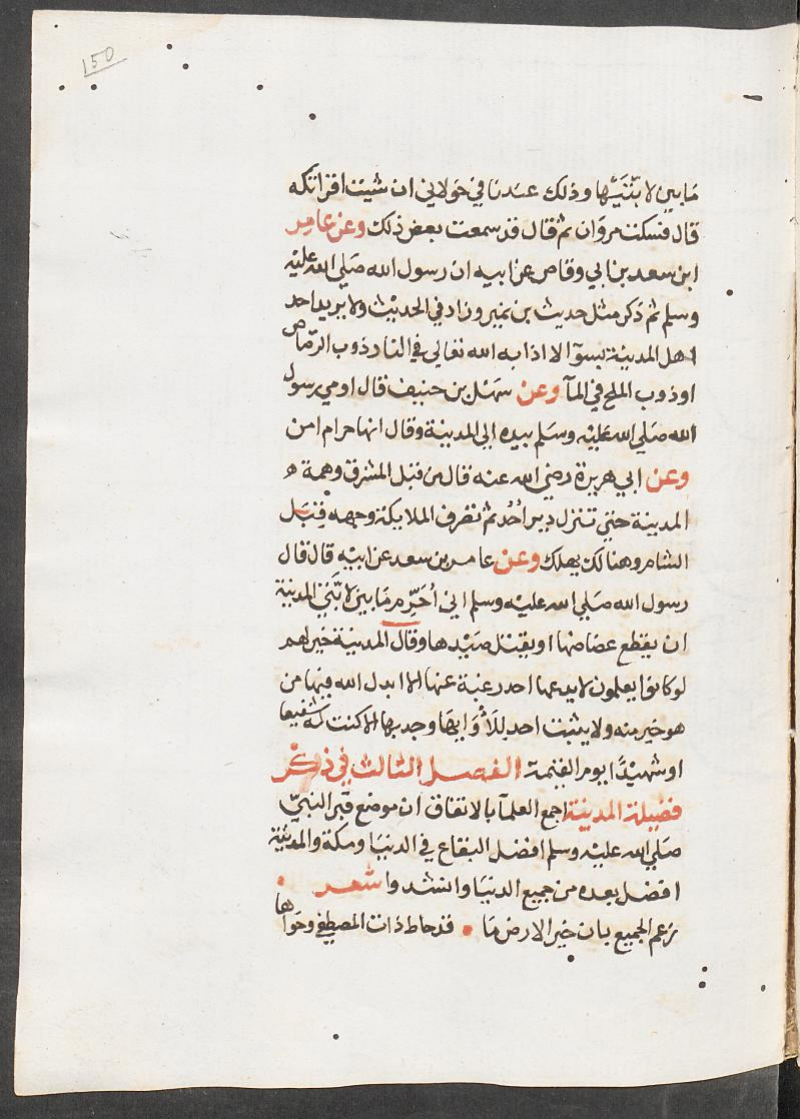 150
مَا بين لابتَيْها وذلك عندنا في خولاني ان شيت اقراتكه
قال فسكت مروان ثم قال قد سمعت بعض ذلك وعن عامِر
ابن سعد بن ابي وقاص عن ابيه ان رسول الله صَلي الله عليْه
وسلم ثم ذكر مثل حديث بن نمير وزاد في الحديْث ولا يريد احد
اهل المدينة بسوٓا الا اذابه الله تعالي في النار ذوب الرّصاص
او ذوب الملح في المآ وعن سهَيْل بن حنيف قال اومي رسول
الله صَلي الله عَليْه وسَلم بيده الي المدينة وقال انها حرام امن
وعن ابي هريرة رضي الله عنه قال من قبَل المشرق وهمة ه
المدينة حتيٰ تنزل دبر اُحُد ثم تصْرف الملايكة وجهه قِبَل
الشام وهنالك يهلك وعن عامر بن سعد عن ابيْه قال قال
رسول الله صَلي الله عليْه وسلم اني اُحَرِّم مَا بين لابَتَي المدينة
ان يقطع عضاهها او يقتل صَيْدها وقال المدينة خير لهم
لو كانوا يعلمون لا يدعها احد رغبة عنها الا ابدل الله فيها من
هو خير منه ولا يثبت احد للأوَايهَا وجدبها الا كنت له شفيعا
او شهيْدًا يوم القيٰمة الفصل الثالث في ذكْر
فضيلة المدينة اجمع العلمآ بالاتفاق ان موضع قبر النبيّ
صَلي الله عليْه وسلم افضل البقاع في الدنيَا ومكة والمدينة
افضل بعده من جميع الدنيَا وانشدوا شعر
زعم الجميع بان خيْر الارض مَا • قد حاط ذات المصطفي وحَواها